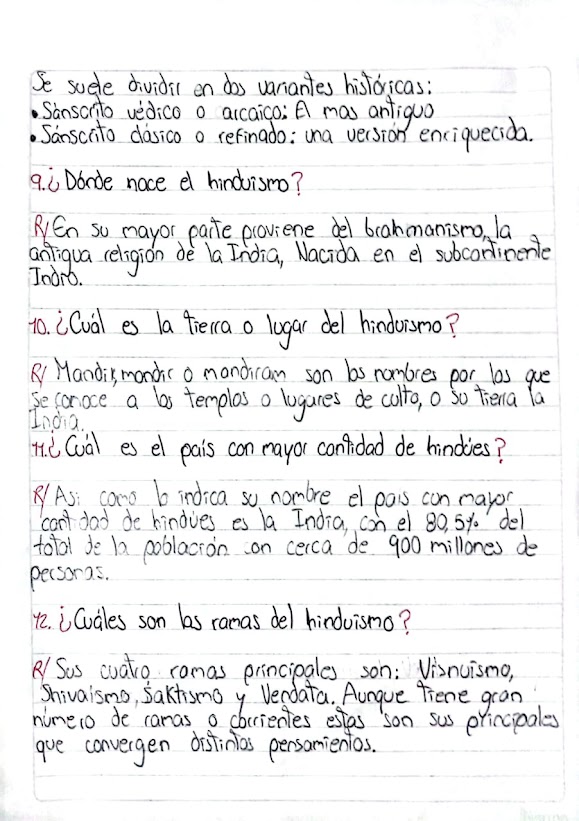 Se suele dividir en dos variantes históricas:
• Sánscrito védico o arcaico: El mas antiguo
• Sánscrito clásico o refinado: una versión enriquecida.
9. ¿Dónde nace el hinduismo?
R/ En su mayor parte proviene del brahmanismo, la
antigua religión de la India, Nacida en el subcontinente
Indio.
10. ¿Cuál es la tierra o lugar del hinduismo?
R/ Mandir, mondir o mandiram son los nombres por los que
se conoce a los templos o lugares de culto, o su tierra la
India.
11. ¿Cuál es el país con mayor cantidad de hindúes?
R/ Asi como lo indica su nombre el pais con mayor
cantidad de hindúes es la India, con el 80,5% del
total de la población con cerca de 900 millones de
personas.
12. ¿Cuáles son las ramas del hinduismo?
R/ Sus cuatro ramas principales son: Visnuismo,
Shivaismo, Saktismo y Vendata. Aunque tiene gran
número de ramas o corrientes estas son sus principales
que convergen distintos pensamientos.